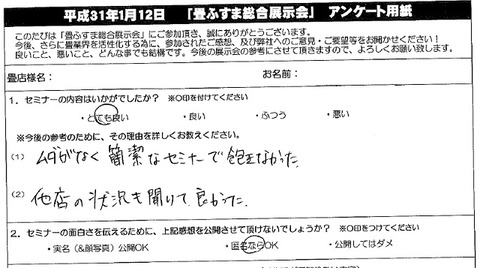 平成31年1月12日　「畳ふすま総合展示会」　アンケート用紙
このたびは「畳ふすま総合展示会」にご参加頂き、誠にありがとうございます。
今後、さらに畳業界を活性化する為に、参加されたご感想、及び弊社へのご意見・ご要望等をお聞かせください！
良いこと、悪いこと、どんな事でも結構です。今後の展示会の参考にさせて頂きますので、よろしくお願い致します。
畳店様名：　お名前：
1．セミナーの内容はいかがでしたか？　※○印を付けてください
・とても良い　・良い　・ふつう　・悪い
※今後の参考のために、その理由を詳しくお教えください。
(1) ムダがなく簡潔なセミナーで飽きなかった
(2) 他店の状況も聞けて良かった
2．セミナーの面白さを伝えるために、上記感想を公開させて頂けないでしょうか？　※○印をつけてください
・実名（&顔写真）公開OK　・匿名ならOK　・公開してはダメ